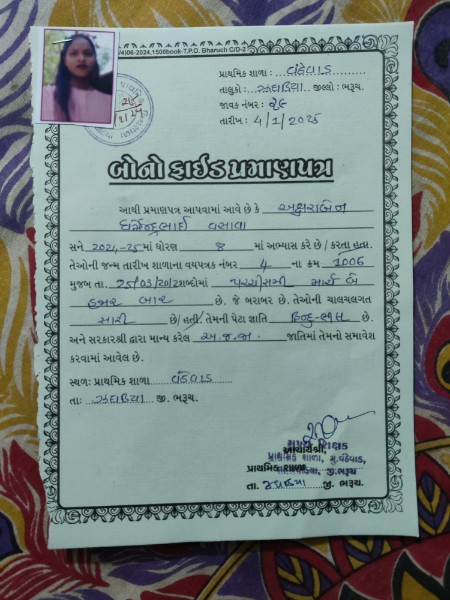 (4)06-2024,1500book-T.P.O. Bharuch C/D-2
પ્રાથમિક શાળા : વંઠેવાડ
તાલુકો : ઝઘડિયા જીલ્લો : ભરૂચ.
જાવક નંબર : ૨૯
તારીખ : 4/1/2025
બોનોફાઈડ પ્રમાણપત્ર
આથી પ્રમાણપત્ર આપવામાં આવે છે કે અક્ષરાબેન
ધર્મેન્દ્રભાઈ વસાવા
સને 2024-25 માં ધોરણ 8 માં અભ્યાસ કરે છે / કરતા હતા.
તેઓની જન્મ તારીખ શાળાના વયપત્રક નંબર 4 ના ક્રમ 1006
મુજબ તા. 25/03/2012 શબ્દોમાં પચ્ચીસમી માર્ચ બે
હજાર બાર છે. જે બરાબર છે. તેઓની ચાલચલગત
સારી છે/ હતી/ તેમની પેટા જ્ઞાતિ હિન્દુ-ભીલ છે.
અને સરકારશ્રી દ્વારા માન્ય કરેલ અ.જ.જા. જાતિમાં તેમનો સમાવેશ
કરવામાં આવેલ છે.
સ્થળ: પ્રાથમિક શાળા વંઠેવાડ
તા: ઝઘડિયા જી. ભરૂચ.
મુખ્ય શિક્ષક
આચાર્યશ્રી,
પ્રાથમિક શાળા, મુ.વંઠેવાડ,
પ્રાથમિક શાળા
તા. ઝઘડિયા જી. ભરૂચ